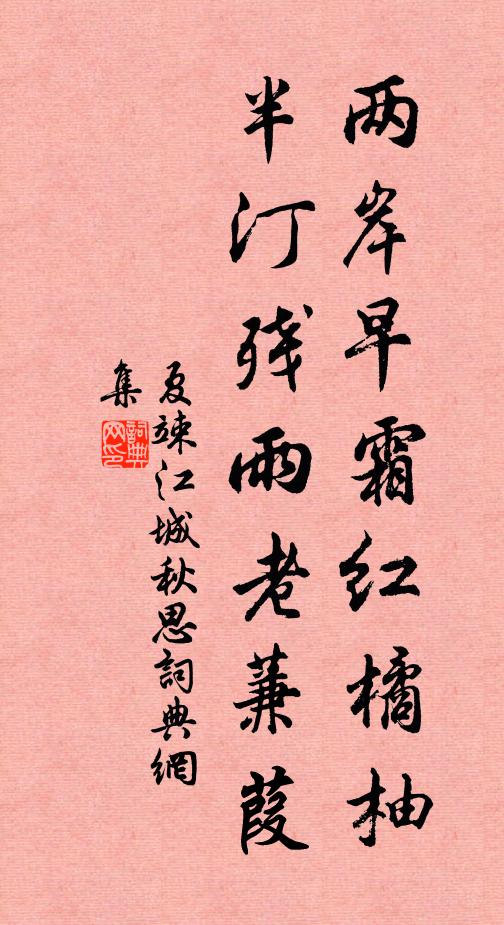 两岸早霜红橘柚
半汀残雨老蒹葭
夏竦江城秋思詞典網
集
詞典网印